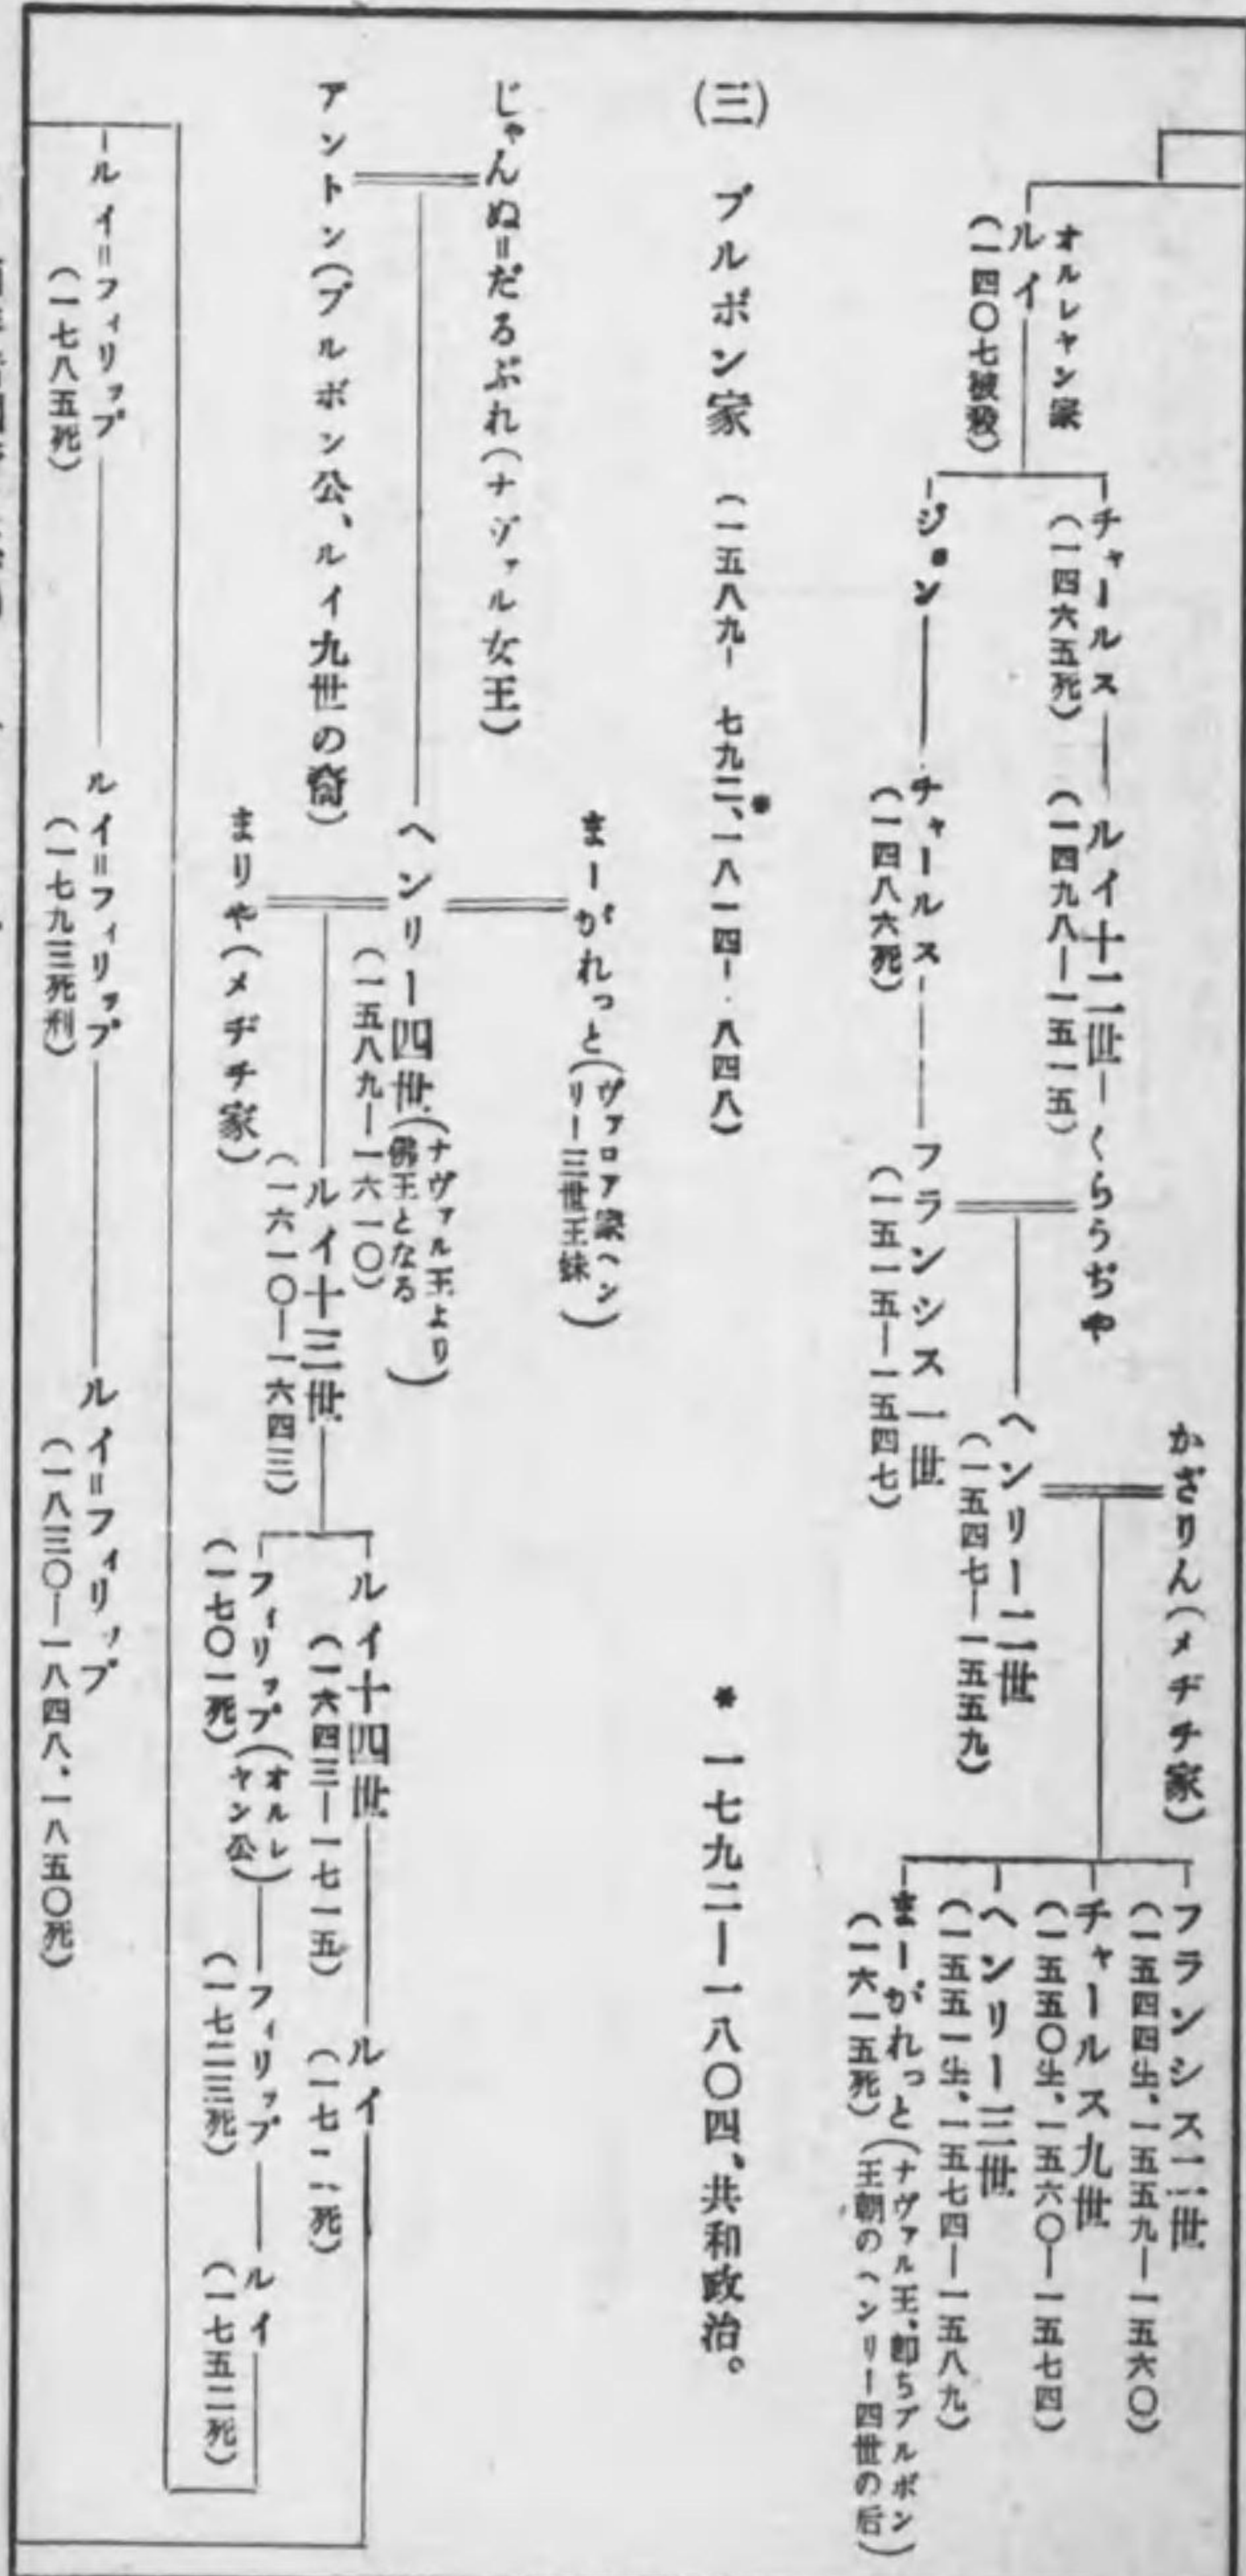 オルレヤン家
ルイ
(一四〇七被殺)
チャールス
(一四六五死)
ルイ十二世―くらうぢや
(一四九八―一五一五)
ジョン
チャールス
(一四八六死)
フランシス一世
(一五一五―一五四七)
かざりん(メヂチ家)
ヘンリー二世
(一五四七―一五五九)
フランシス二世
(一五四四生、一五五九―一五六〇)
チャールス九世
(一五五〇生、一五六〇―一五七四)
ヘンリー三世
(一五五一生、一五七四―一五八九)
まーがれっと(ナヴァル王、卽ちブルボン
王朝のヘンリー四世の后)
(一六一五死)
(三) ブルボン家 (一五八九― 七九二、*一八一四― 八四八)
* 一七九二―一八〇四、共和政治。
じゃんぬ=だるぶれ(ナヴァル女王)
アントン(ブルボン公、ルイ九世の裔)
まーがれっと(ヴァロア家ヘン
リー三世王妹)
ヘンリー四世(ナヴァル王より
佛王となる)
(一五八九―一六一〇)
まりや(メヂチ家)
ルイ十三世
(一六一〇―一六四三)
ルイ十四世
(一六四三―一七一五)
ルイ
(一七一一死)
フィリップ(オルレ
ヤン公)
(一七〇一死)
フィリップ
(一七二三死)
ルイ
(一七五二死)
ルイ=フィリップ
(一七八五死)
ルイ=フィリップ
(一七九三死刑)
ルイ=フィリップ
(一八三〇―一八四八、一八五〇死)